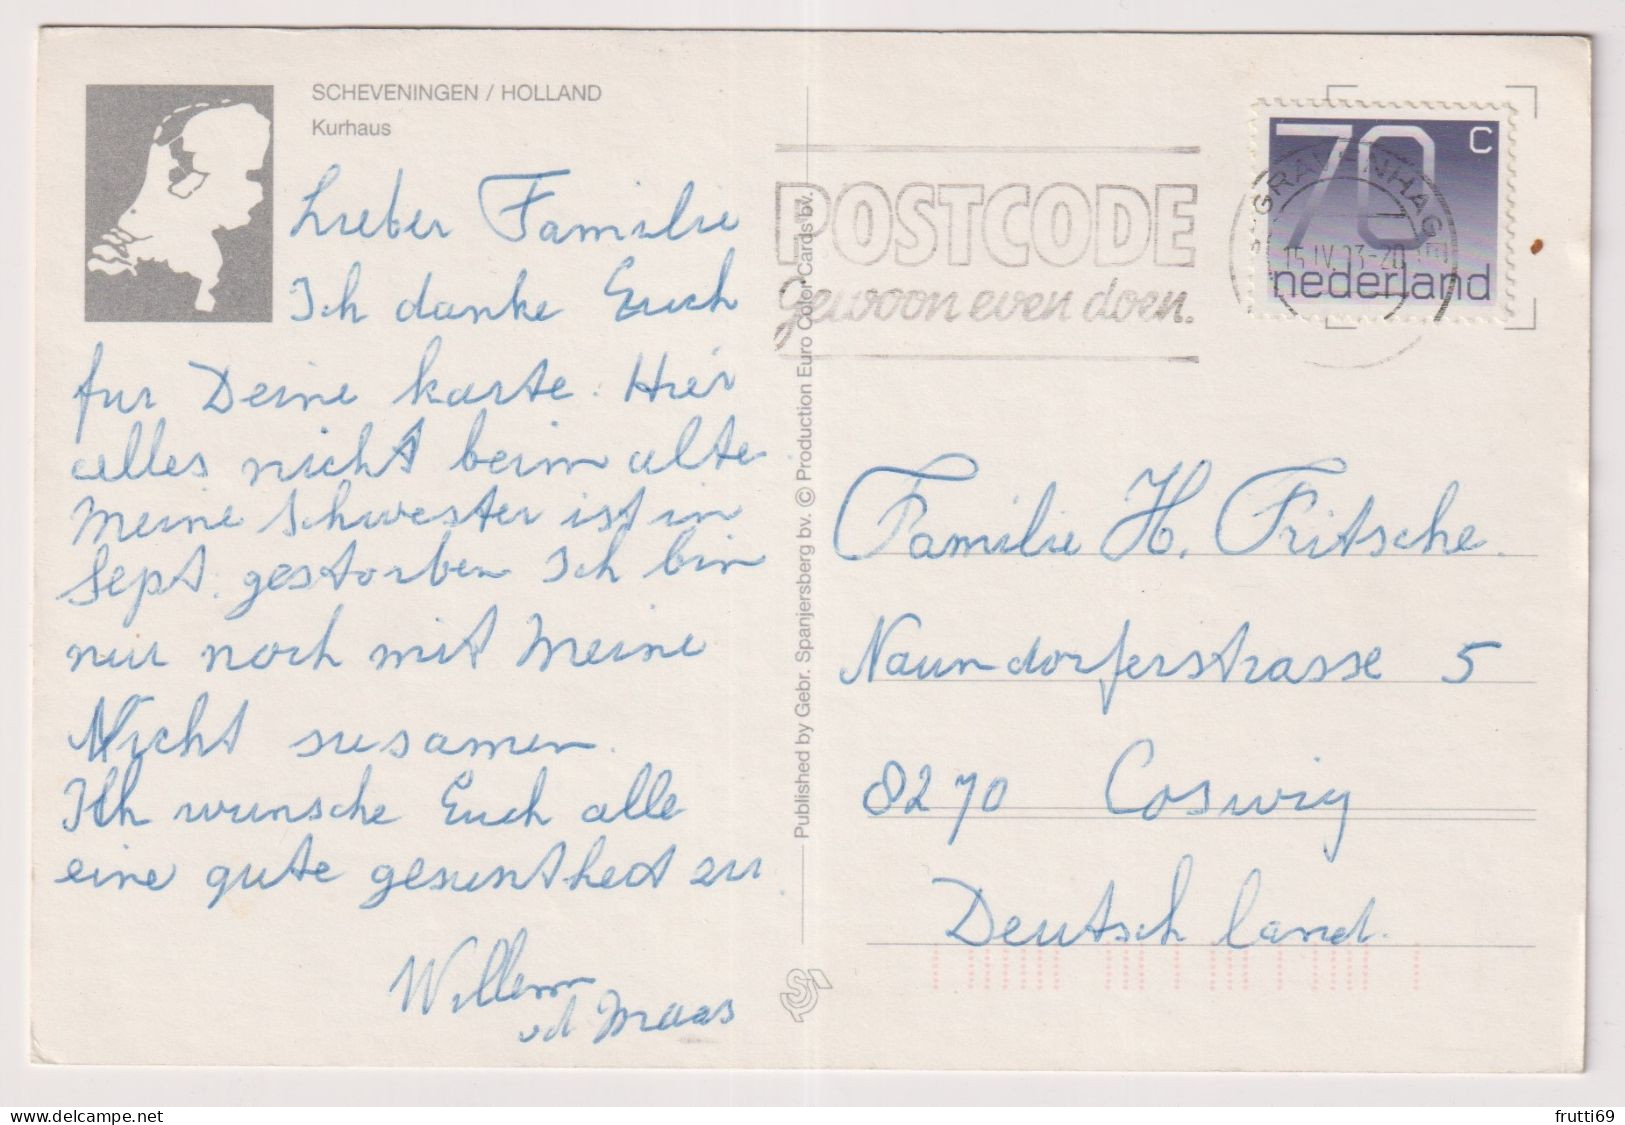 SCHEVENINGEN / HOLLAND
Kurhaus
Lieber Familie
Ich danke Euch
fur Deine karte. Hier
alles nicht beim alte.
Meine Schwester ist in
Sept. gestorben Ich bin
nur noch mit Meine
Nicht susamen.
Ich wunsche Euch alle
eine gute gesuntheit zu.
Willem
vd Maas
Published by Gebr. Spanjersberg bv. © Production Euro Color Cards bv.
POSTCODE
Gewoon even doen.
70 c
nederland
'S-GRAVENHAGE
15 IV 93-20
Familie H. Fritsche.
Naundorferstrasse 5
8270 Coswig
Deutschland.
frutti69
www.delcampe.net